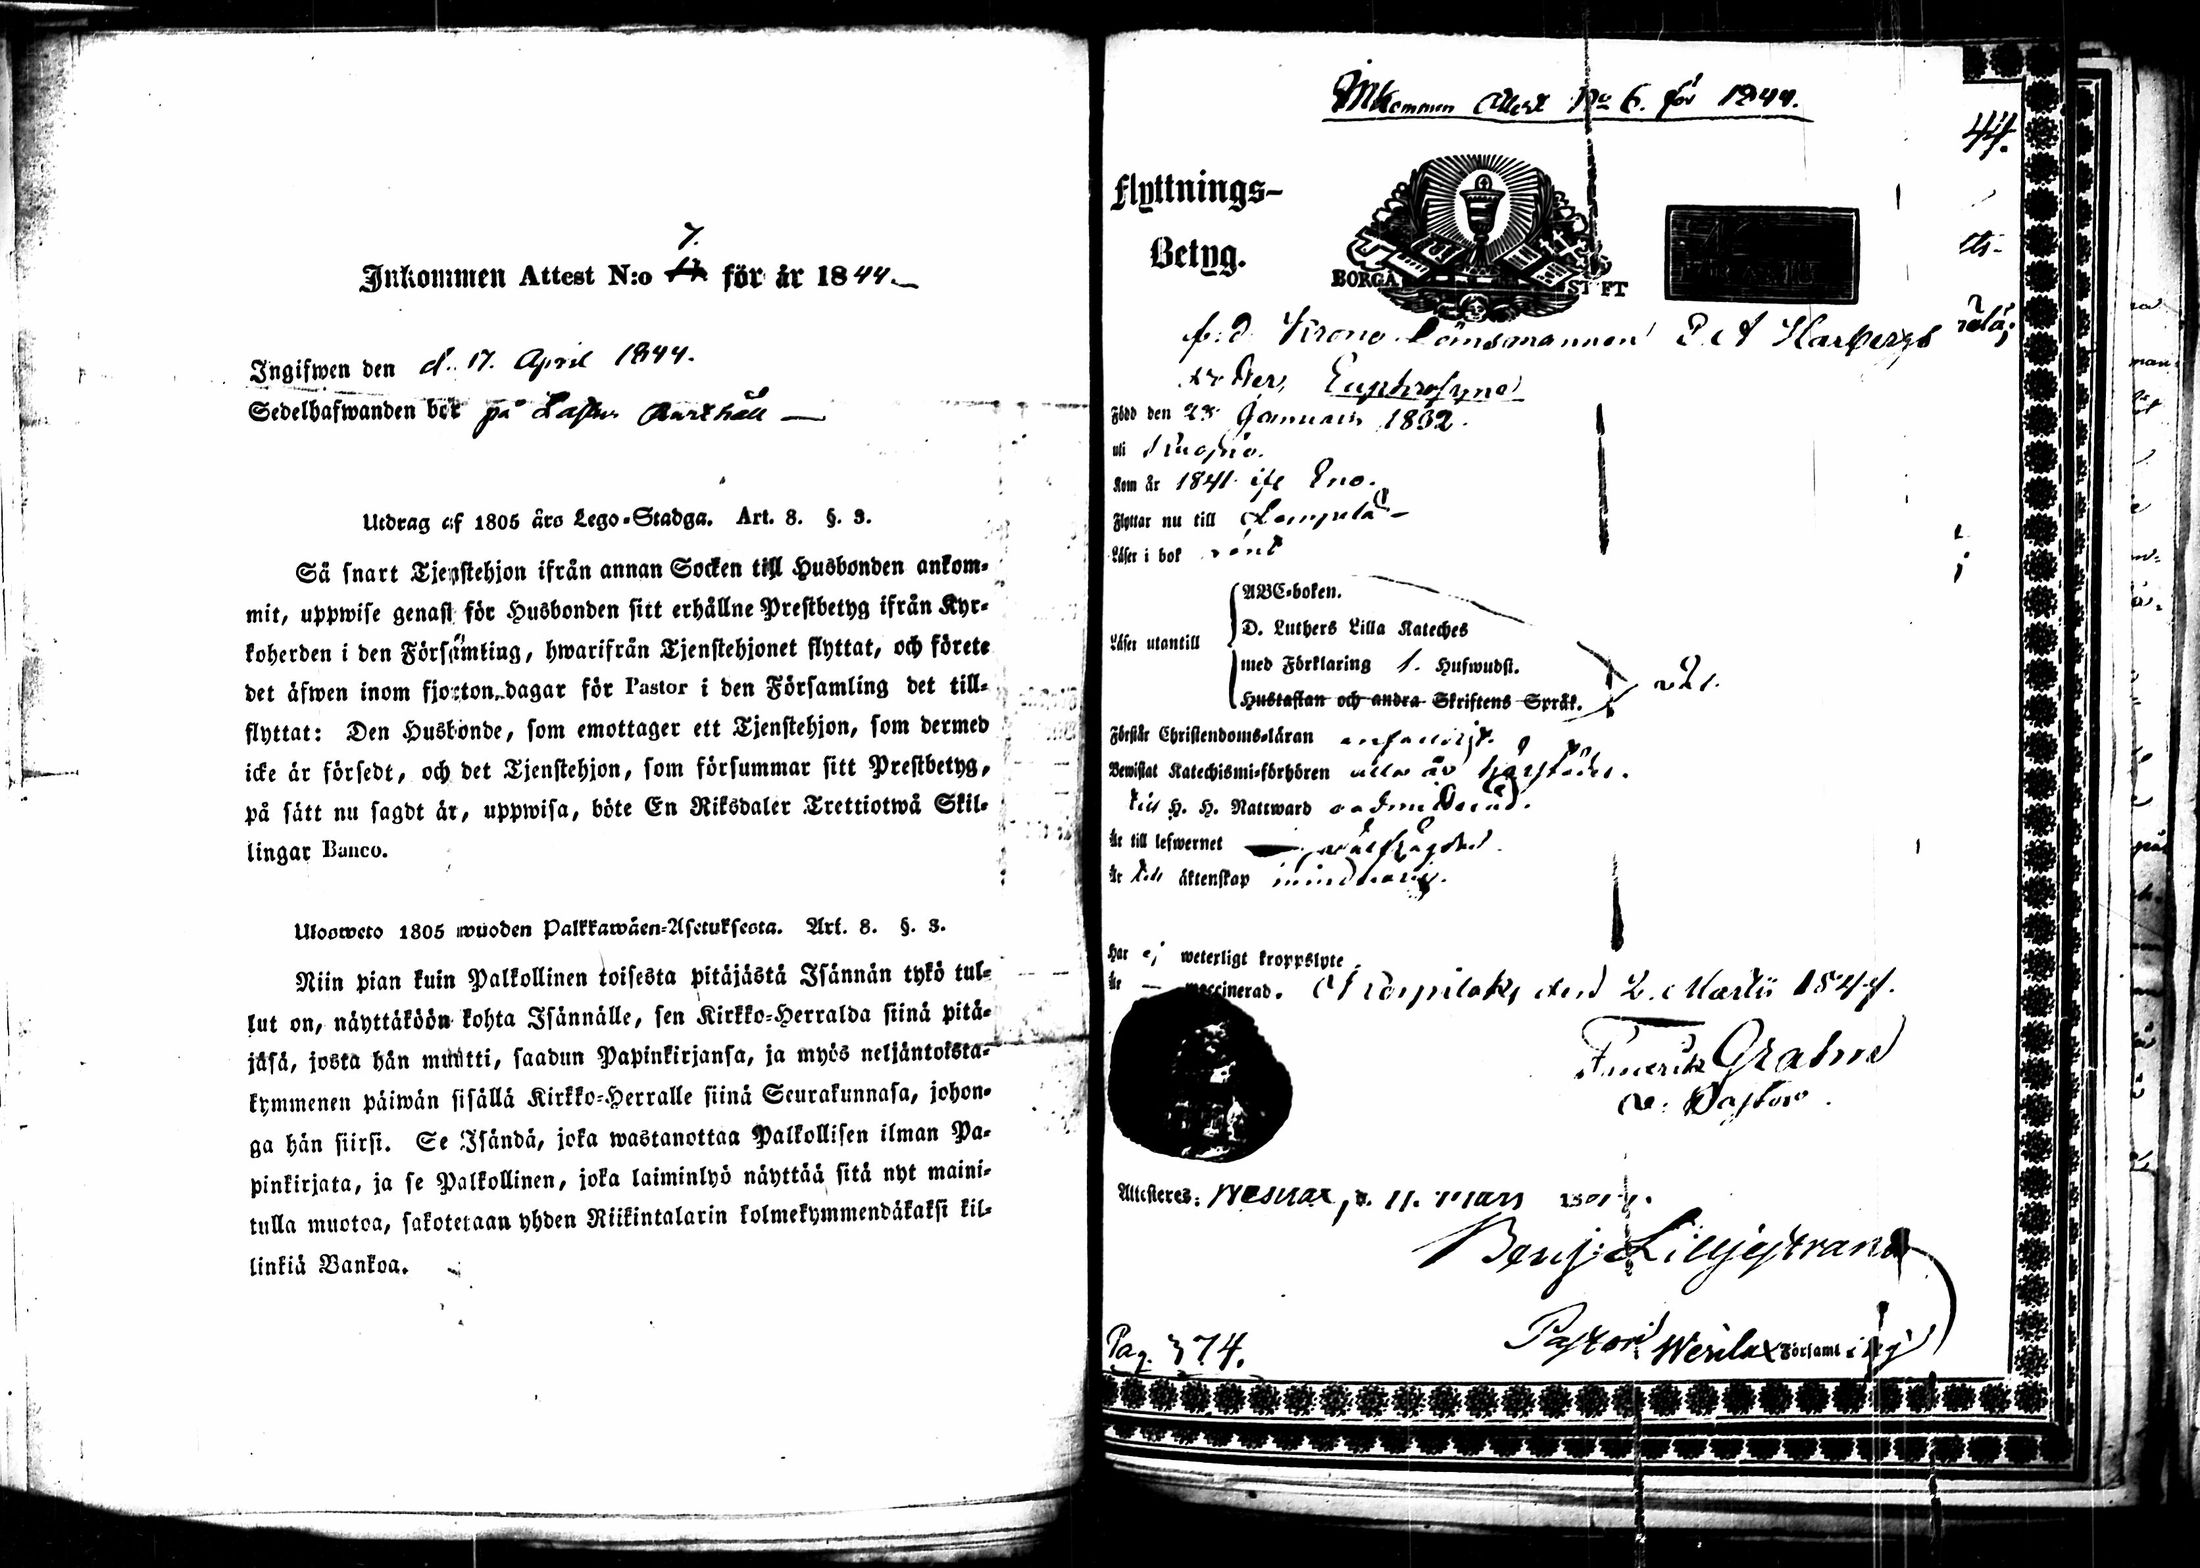 7.
Inkommen Attest N:o för år 1844.
Ingifwen den d. 17. April 1844.
Sedelhafwanden bor på
Utdrag af 1805 års Lego-Stadga. Art. 8. §. 3.
Så snart Tjenstehjon ifrån annan Socken till Husbonden ankom-
mit, uppwise genast för Husbonden sitt erhållne Prestbetyg ifrån Kyr-
koherden i den Församling, hwarifrån Tjenstehjonet flyttat, och förete
det äfwen inom fjorton dagar för Pastor i den Församling det till-
flyttat: Den Husbonde, som emottager ett Tjenstehjon, som dermed
icke är försedt, och det Tjenstehjon, som försummar sitt Prestbetyg,
på sätt nu sagdt är, uppwisa, böte En Riksdaler Trettiotwå Skil-
lingar Banco.
Ulosweto 1805 wuoden Palkkawäen-Asetuksesta. Art. 8. §. 3.
Niin pian kuin Palkollinen toisesta pitäjästä Isännän tykö tul-
lut on, näyttäköön kohta Isännälle, sen Kirkko-Herralda siinä pitä-
jäsä, josta hän muutti, saadun Papinkirjansa, ja myös neljäntoista-
kymmenen päiwän sisällä Kirkko-Herralle siinä Seurakunnasa, johon-
ga hän siirsi. Se Isändä, joka wastanottaa Palkollisen ilman Pa-
pinkirjata, ja se Palkollinen, joka laiminlyö näyttää sitä nyt maini-
tulla muotoa, sakotetaan yhden Riikintalarin kolmekymmendäkaksi kil-
linkiä Bankoa.
Inkommen Attest No 6. för 1844.
44.
Flyttnings-
Betyg.
BORGÅ STIFT
f. d. Krono Länsmannen P. A Harbergs
dotter, Euphrosyne
Född den 23 Januari 1832.
uti Kuopio.
Kom år 1841 ifr Eno.
Flyttar nu till
Läser i bok
ABC-boken.
D. Luthers Lilla Kateches
Läser utantill
med Förklaring 1. Hufwudst.
Hustaflan och andra Skriftens Språk.
Förstår Christendoms-läran enfaldigt.
Bewistat Katechismi-förhören
till H. H. Nattward oadmitterad.
Är till lefwernet wälfrägdad.
Är till äktenskap minderårig.
Har ej weterligt kroppslyte
Är waccinerad. den 2. Martii 1844.
v. Pastor.
Attesteres: d. 11. Mars 1844.
Benj: Lilljestrand
Pastor i Församling
Pag. 374.